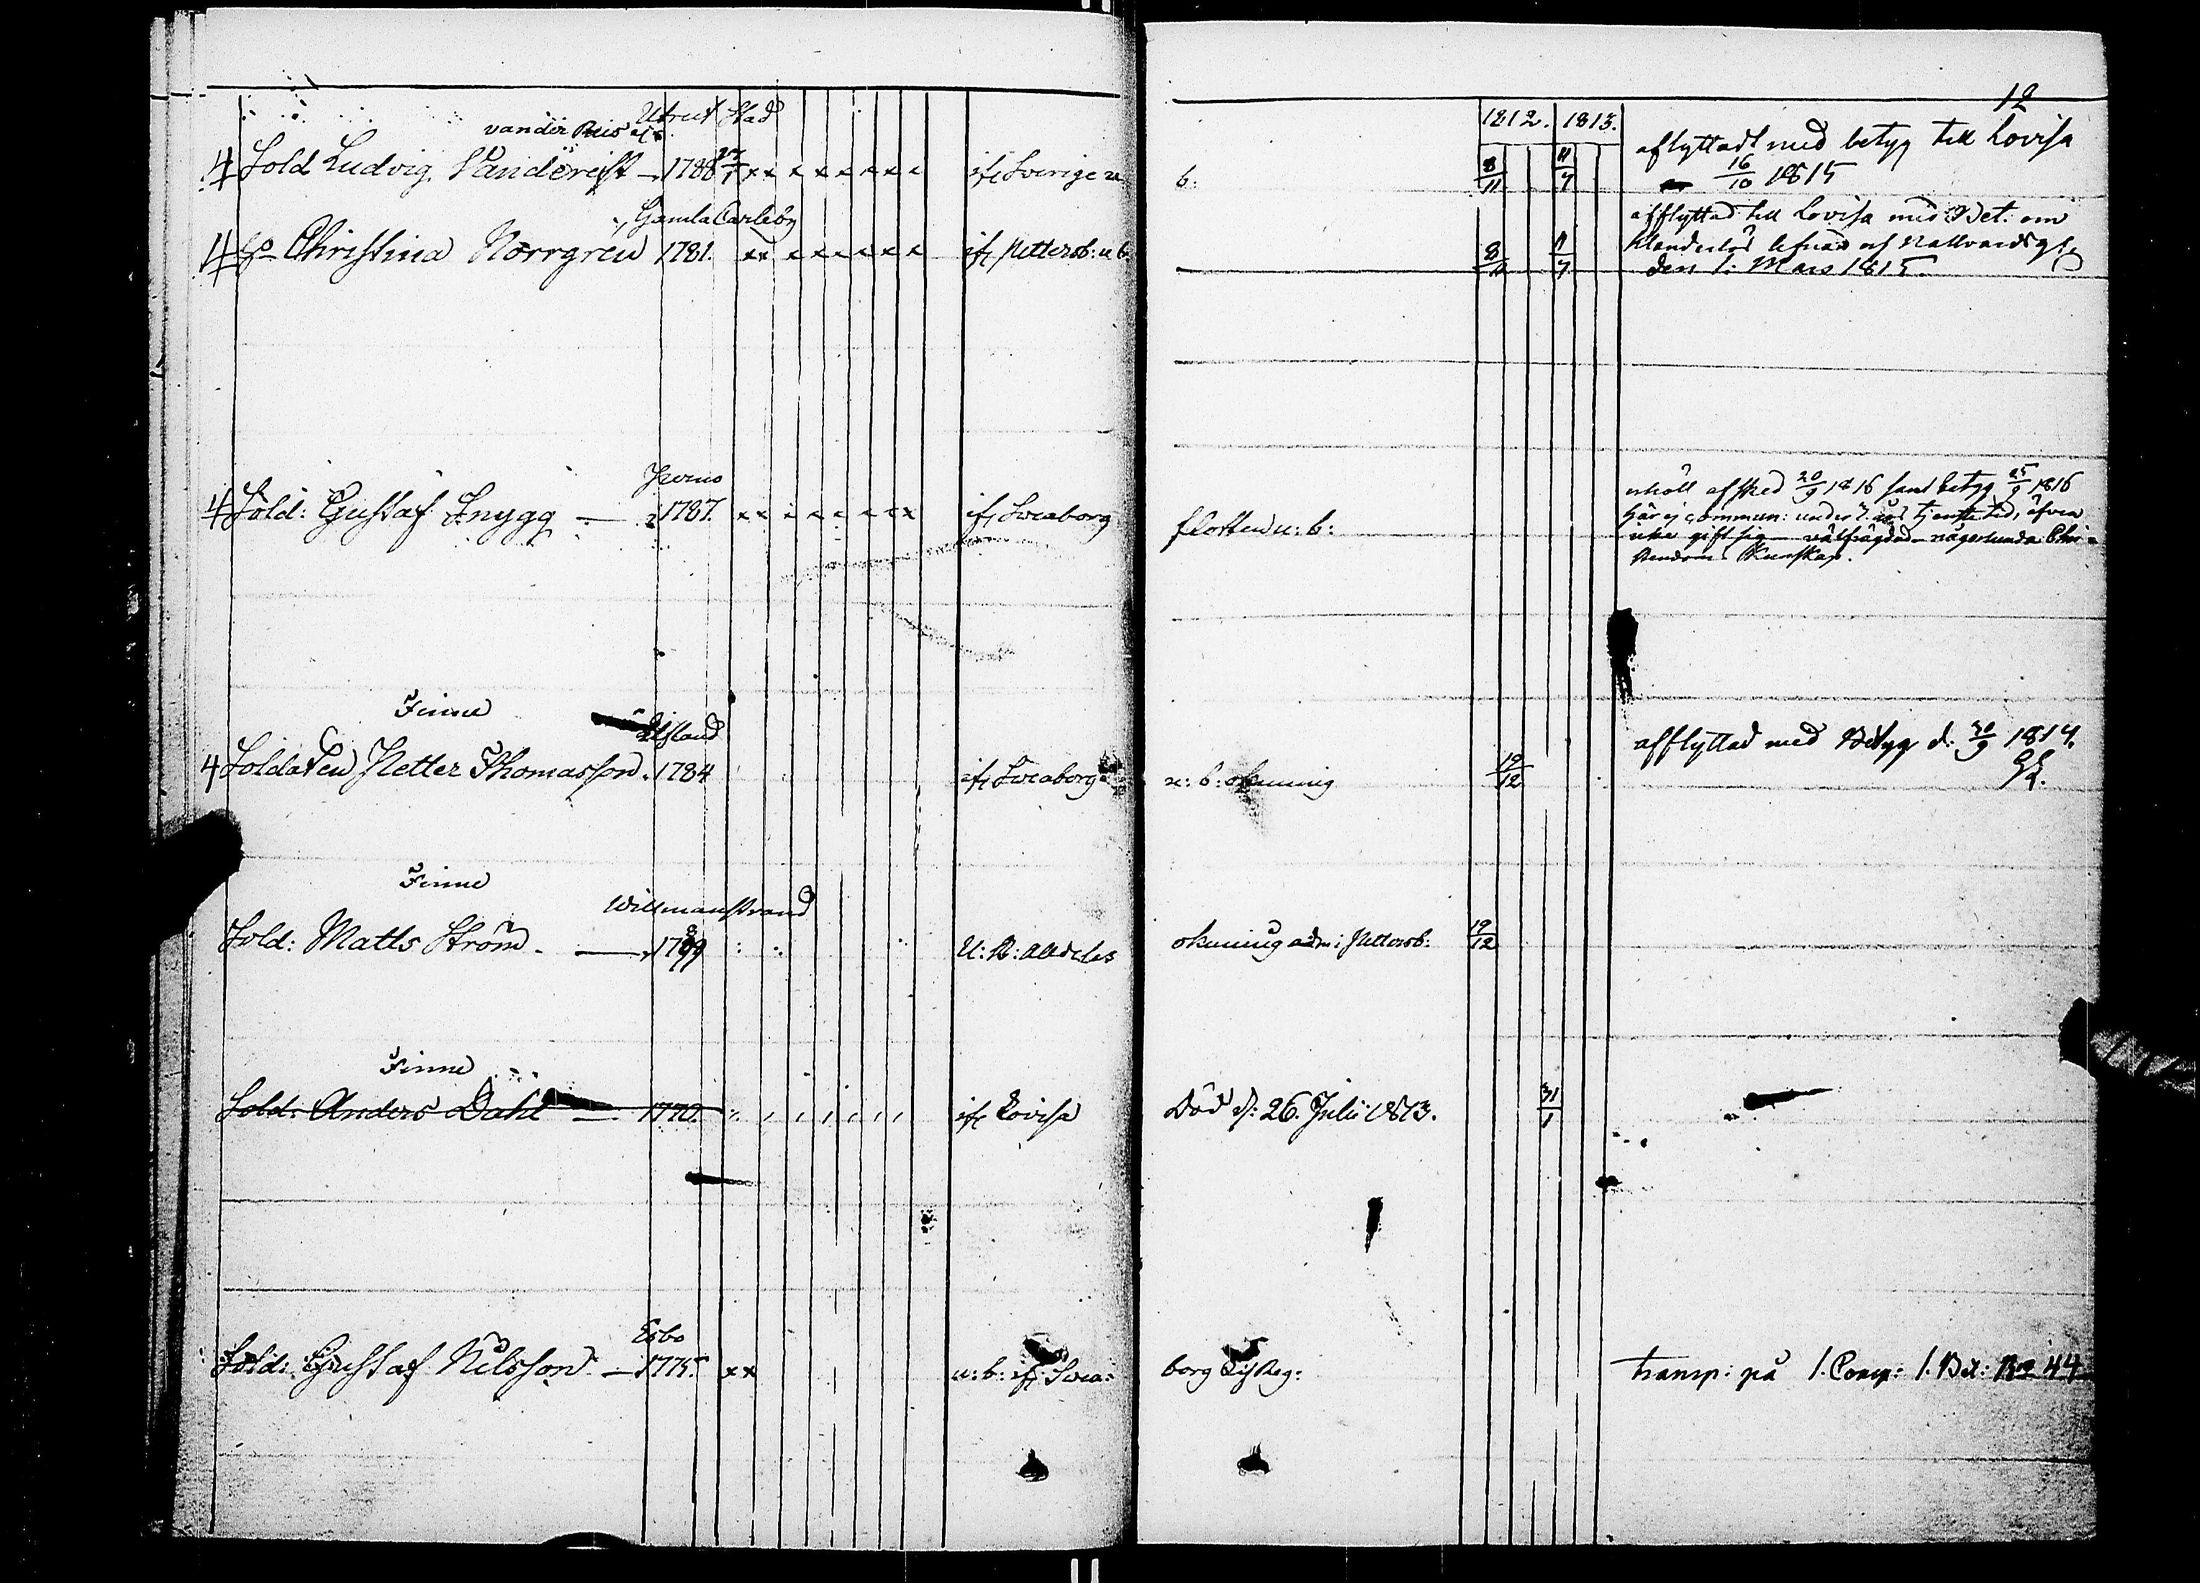 12
1812. 1813.
Utrect Stad
Sold Ludvig Vandereist 1788 27/1 x x x x x x x x if: Sverige u b: 8/11 11/7 aflyttadt med betyg till Lovisa
16/10 1815
Gamla Carleby
4 Ho Christina Norrgren 1781. x x x x x x x x if: Pettersb: u b 8/11 11/7 afflyttad till Lovisa med Bet: om
och Nattvards
den 1: Mars 1815.
Perno
4 Sold: Gustaf Snygg 1787. x x x x x x x x if: Sveaborg flotten u: b: afsked 20/9 1816 samt betyg 25/9 1816
här ej commun: under tjenste tid, äfven
gift sig någorlunda Chri-
stendoms Kunskap.
Finne
4 Soldaten Petter Thomasson. 1784 if: Sveaborg u: b: okunnig 19/12 afflyttad med Betyg d. 30/9 1814.
Finne
Willmanstrand
Sold: Matts Ström 1789 U: B: alldeles okunnig adm: i Pettersb: 19/12
Finne
Sold: Anders Dahl 1770. if: Lovisa Död d: 26. Julii 1813. 31/1
Esbo
Sold: Gustaf Nilsson 1775. x x u: b: if: Svea: borg Reg: transp: på 1. Comp: 1. Bat: No 44